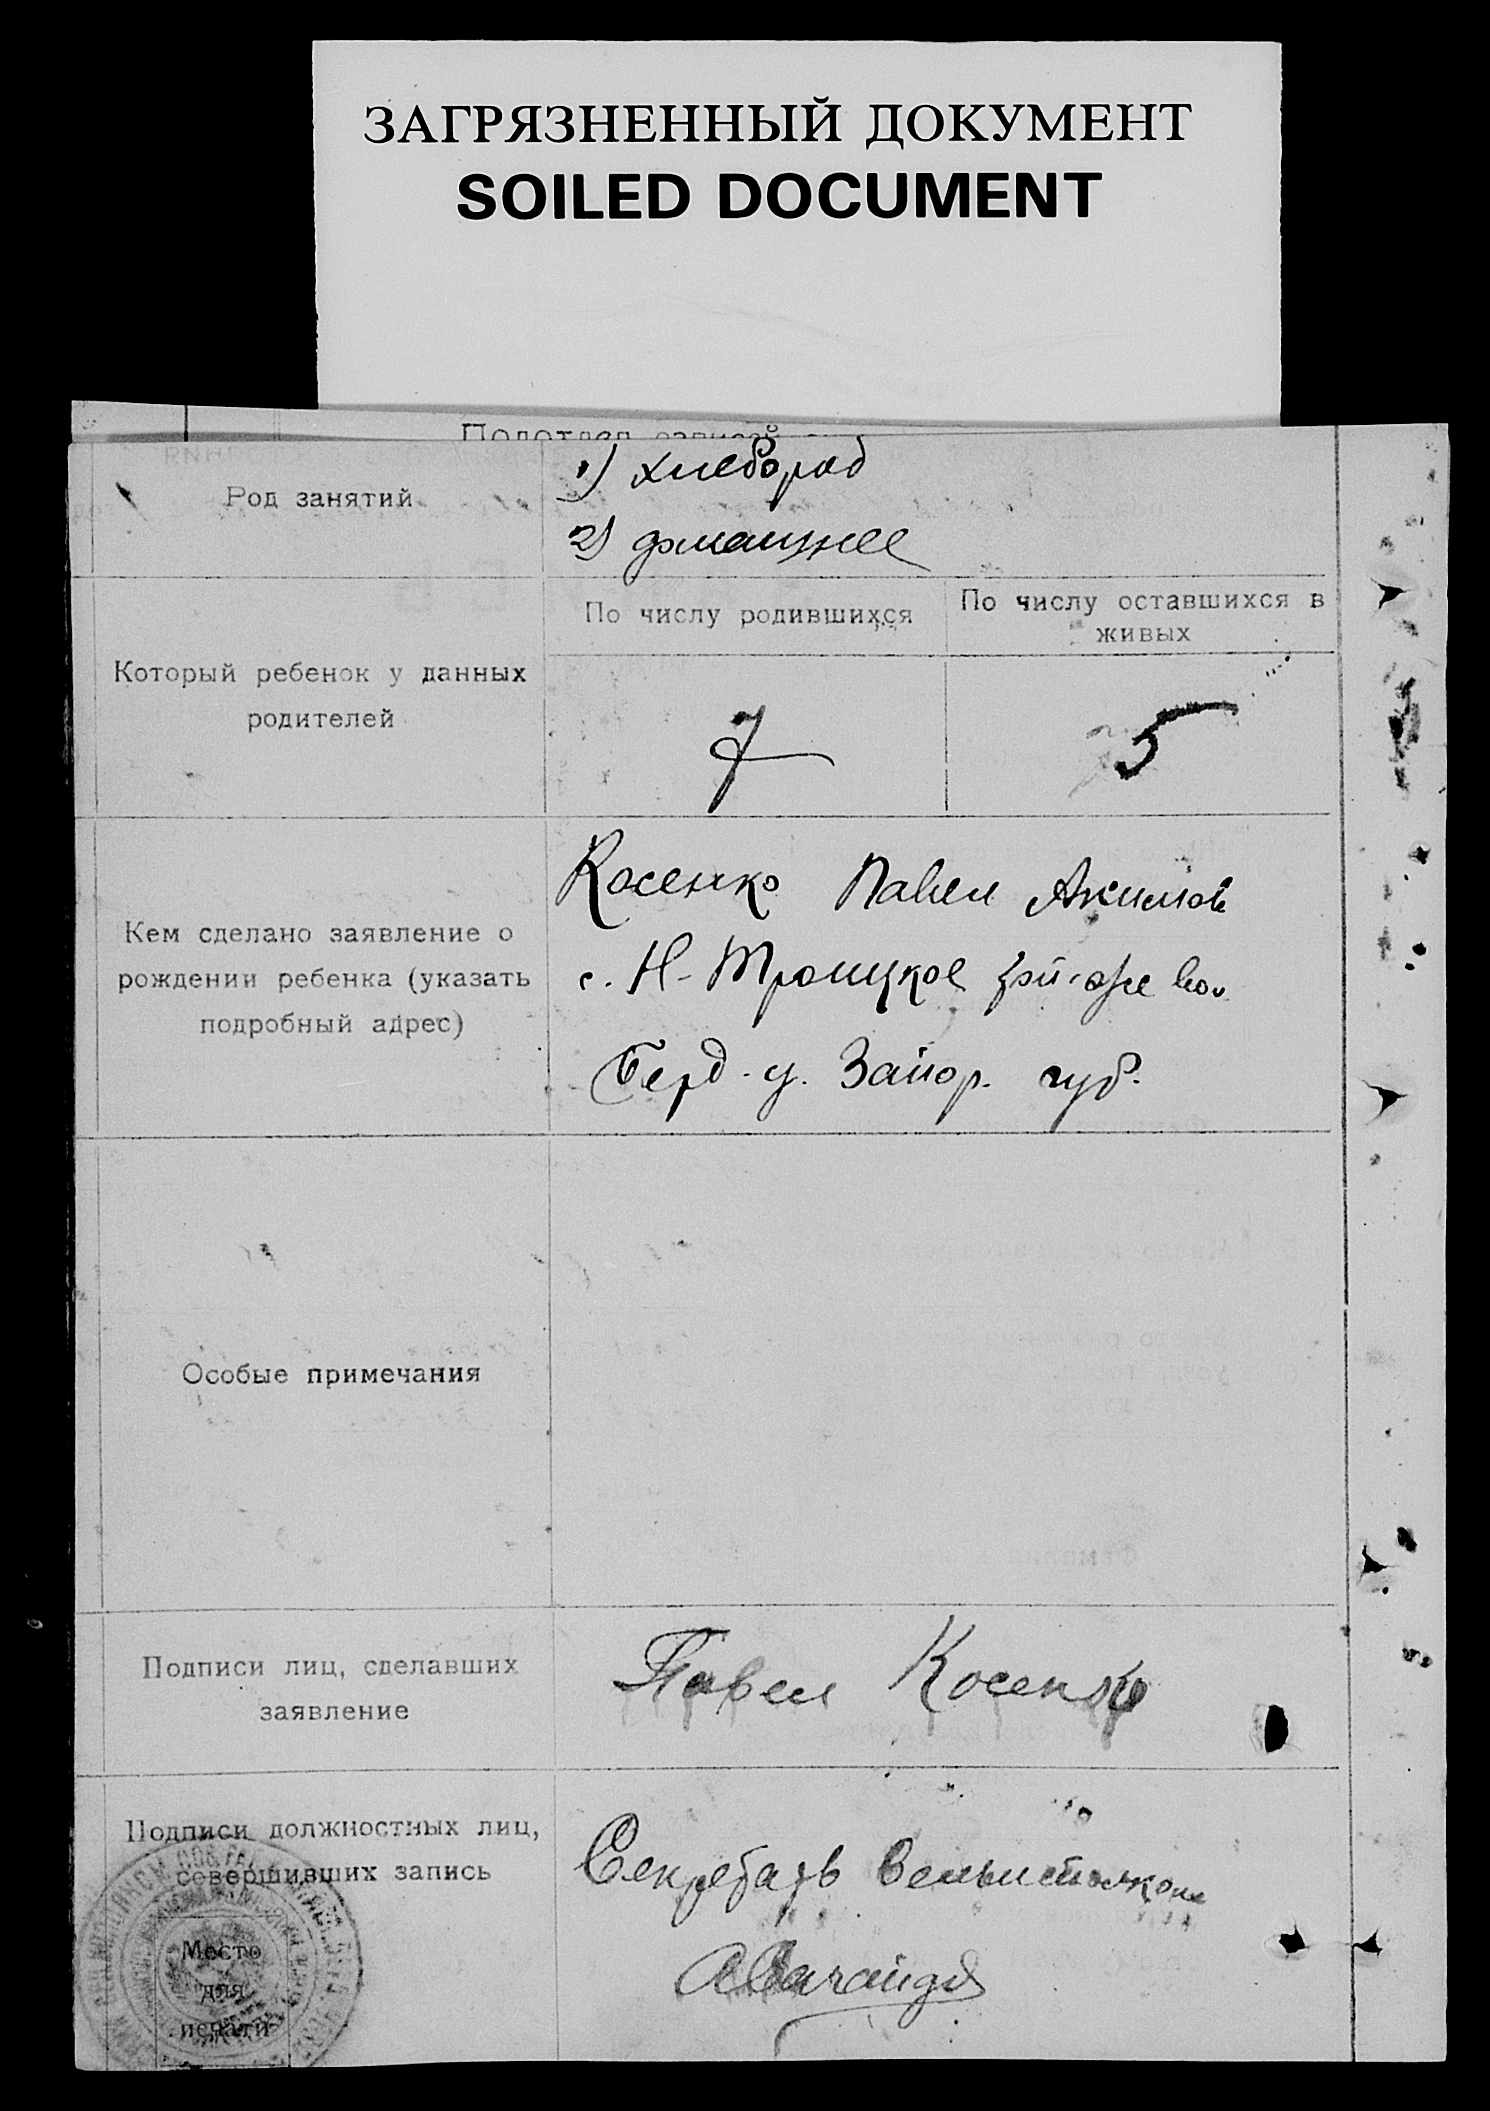 ЗАГРЯЗНЕННЫЙ ДОКУМЕНТ
SOILED DOCUMENT
Подотдел записей
Род занятий
1) хлебороб
2) домашнее
Который ребенок у данных
родителей
По числу родившихся
По числу оставшихся в
живых
7
5
Кем сделано заявление о
рождении ребенка (указать
подробный адрес)
Косенко Павел Акимов
с. Н-Троицкое вол
Берд. у. Запор. губ.
Особые примечания
Подписи лиц, сделавших
заявление
Павел Косенко
Подписи должностных лиц,
совершивших запись
Место
для
печати
Секретарь